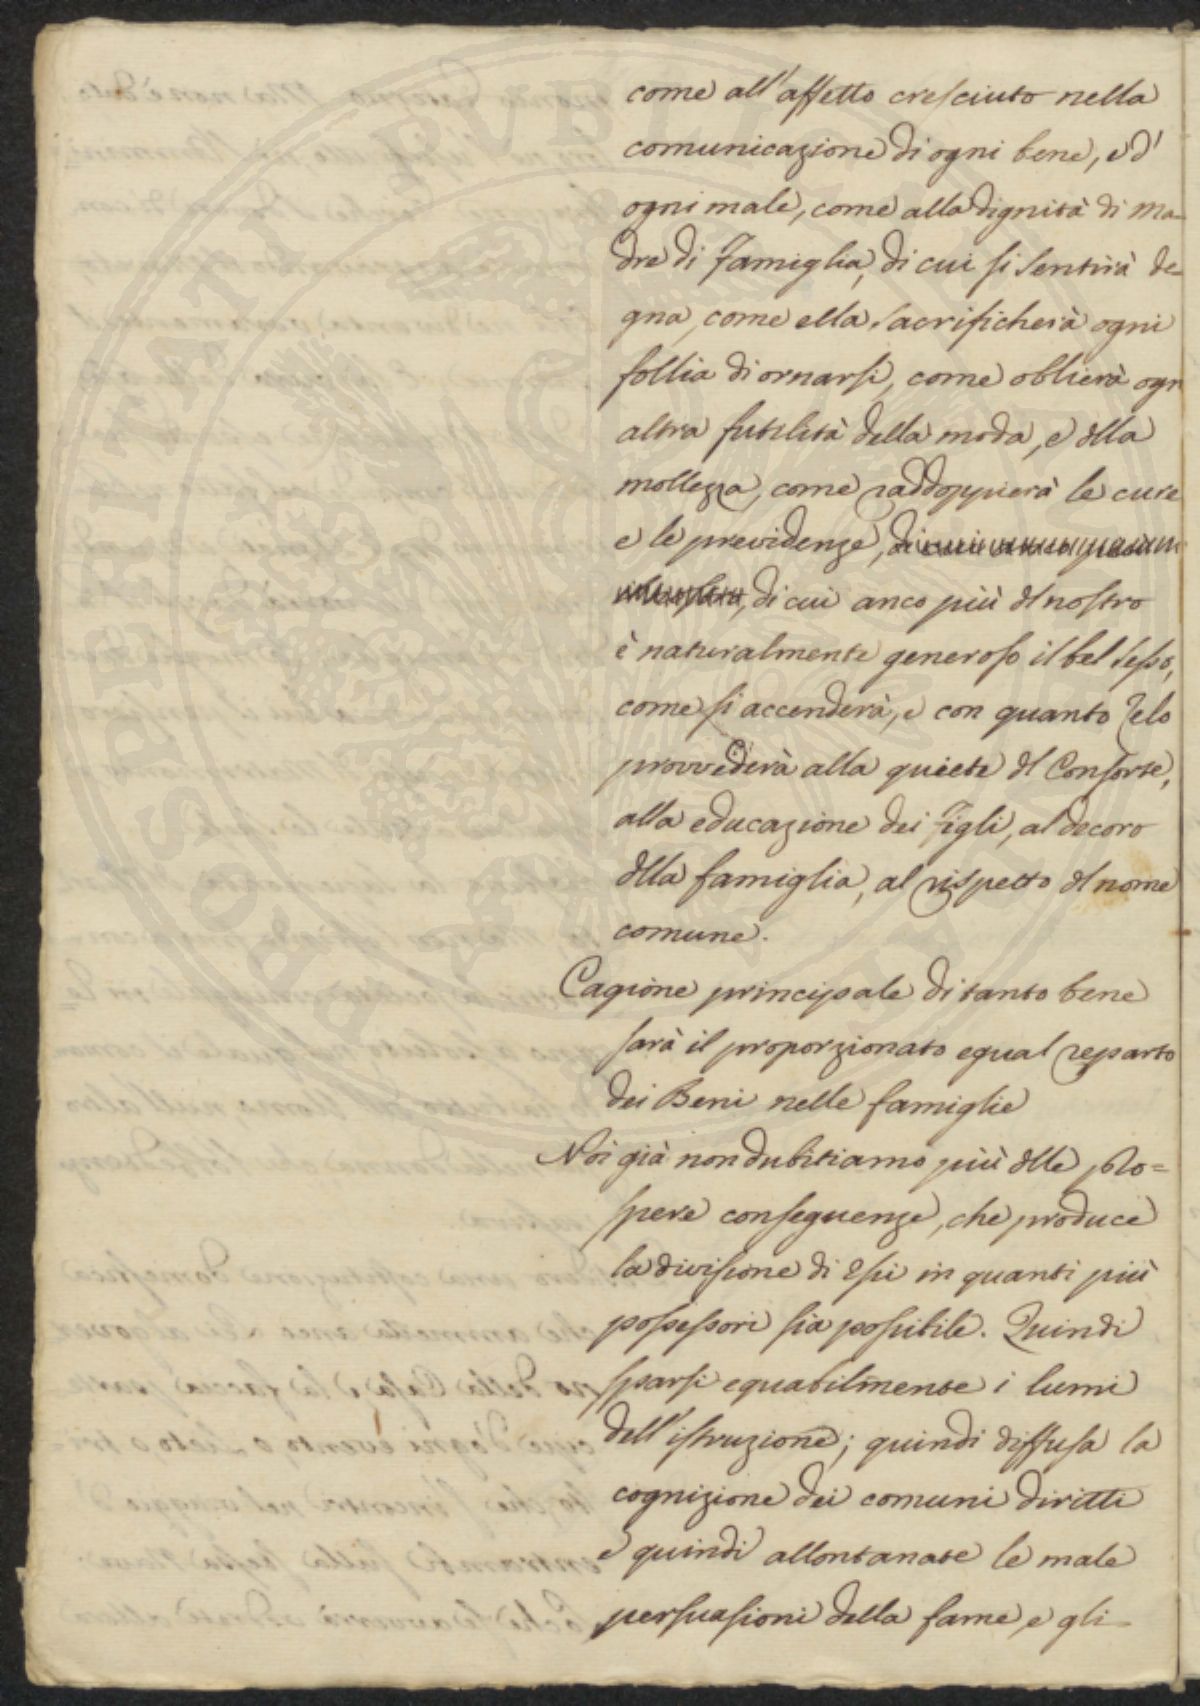 come all'affetto cresciuto nella
comunicazione di ogni bene, e d'
ogni male, come alla dignità di Ma-
dre di Famiglia, di cui si sentirà de-
gna, come ella sacrificherà ogni
follia di ornarsi, come oblierà ogn
altra futilità della moda, e dlla
mollezza, come raddoppierà le cure
e le previdenze,
di cui anco più dl nostro
è naturalmente generoso il bel sesso,
come si accenderà, e con quanto zelo
provvederà alla quiete dl Consorte,
alla educazione dei Figli, al decoro
dlla famiglia, al rispetto dl nome
comune.
Cagione principale di tanto bene
sarà il proporzionato egual reparto
dei Beni nelle famiglie
Noi già non dubitiamo più dlle pro=
spere conseguenze, che produce
la divisione di Essi in quanti più
possessori sia possibile. Quindi
sparsi equabilmente i lumi
dell'istruzione; quindi diffusa la
cognizione dei comuni diritti
e quindi allontanate le male
persuasioni della fame, e gli
PROSPERITATI PUBLICAE